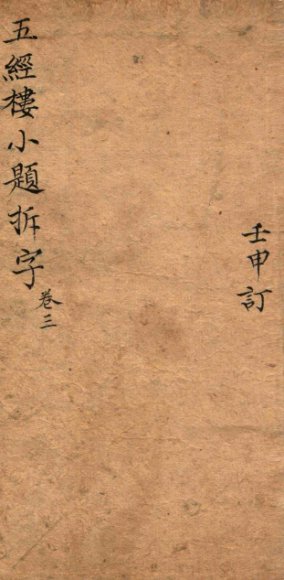 壬申訂
五經樓小題拆字
卷三